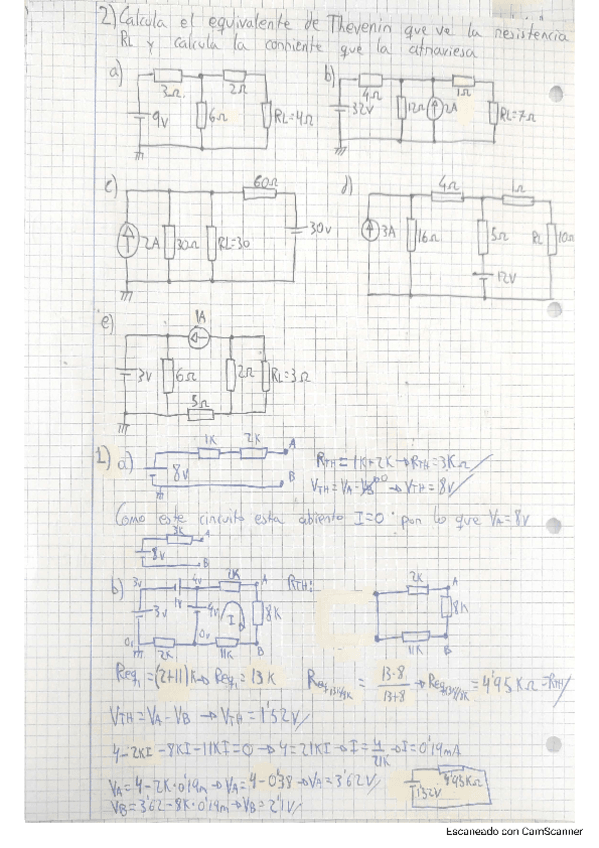 2) Calcula el equivalente de Thevenin que ve la resistencia
RL y calcula la corriente que la atraviesa
a)
3Ω
2Ω
9V
6Ω
RL=4Ω
b)
4Ω
1Ω
32V
12Ω
2A
RL=7Ω
c)
60Ω
2A
30Ω
RL=30
30V
d)
4Ω
1Ω
3A
16Ω
5Ω
RL
10Ω
12V
e)
1A
3V
6Ω
2Ω
RL=3Ω
5Ω
1) a)
1K
2K
A
8V
B
RTH=1K+2K→RTH=3KΩ
VTH=VA-VB→VTH=8V
Como este circuito esta abierto I=0 por lo que VA=8V
3K
A
8V
B
b)
3V
4V
2K
A
1V
3V
4V
I
8K
0V
0V
2K
11K
B
RTH:
2K
A
8K
11K
B
Req1=(2+11)K→Req1=13K
Req13//8K = 13·8 / 13+8 → Req13//8K = 4'95KΩ=RTH
VTH=VA-VB→VTH=1'52V
4-2KI-8KI-11KI=0→4=21KI→I=4/21K→I=0'19mA
VA=4-2K·0'19m→VA=4-0'38→VA=3'62V
VB=3'62-8K·0'19m→VB=2'1V
1'52V
4'95KΩ
Escaneado con CamScanner